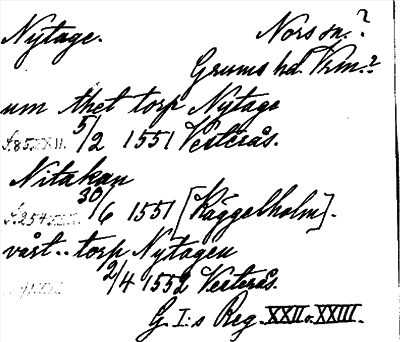 Nytage. Nors sn.?
Grums hd. Vrm.?
um thet torp Nytage
5/2 1551 Vesterås.
Nitakan
f. 254 30/6 1551 [Käggelholm].
vårt .. torp Nytagen
2/4 1552 Vesterås.
G. I:s Reg. XXII o. XXIII.